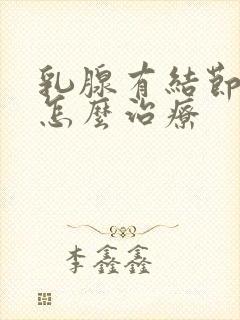 乳腺有結節
怎麼治療
李鑫鑫